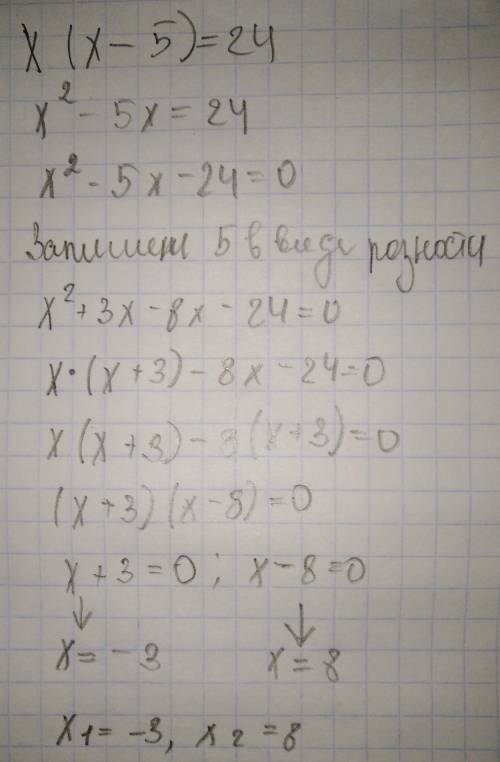 x (x - 5) = 24
x² - 5x = 24
x² - 5x - 24 = 0
Запишем 5 в виде разности
x² + 3x - 8x - 24 = 0
x · (x + 3) - 8x - 24 = 0
x (x + 3) - 8 (x + 3) = 0
(x + 3) (x - 8) = 0
x + 3 = 0 ; x - 8 = 0
↓ ↓
x = - 3 x = 8
x1 = -3, x2 = 8